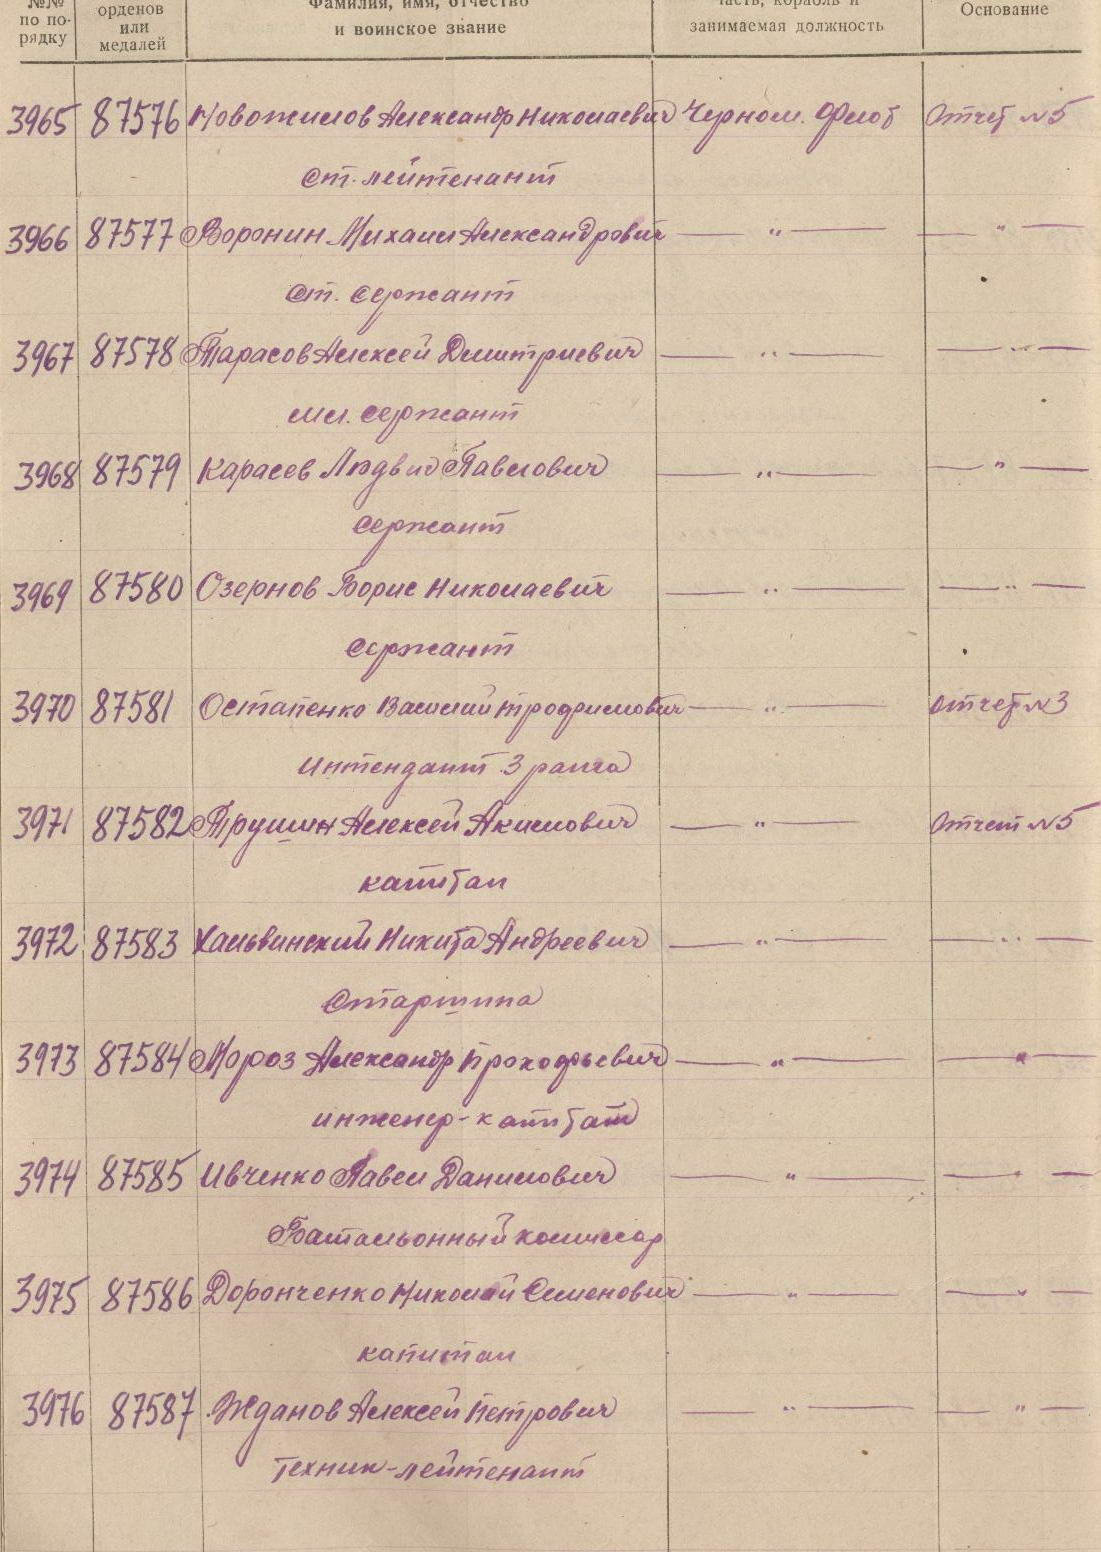 №№ орденов Фамилия, имя, отчество часть, корабль и Основание
по по- или и воинское звание занимаемая должность
рядку медалей
3965 87576 Новожилов Александр Николаевич Черном. Флот Отчет №5
ст. лейтенант
3966 87577 Воронин Михаил Александрович — " — — " —
ст. сержант
3967 87578 Тарасов Алексей Дмитриевич — " — — " —
мл. сержант
3968 87579 Карасев Людвиг Павлович — " — — " —
сержант
3969 87580 Озернов Борис Николаевич — " — — " —
сержант
3970 87581 Остапенко Василий Трофимович — " — Отчет №3
Интендант 3 ранга
3971 87582 Трушин Алексей Акимович — " — Отчет №5
капитан
3972 87583 Хальвинский Никита Андреевич — " — — " —
Старшина
3973 87584 Мороз Александр Прокофьевич — " — — " —
инженер-капитан
3974 87585 Ивченко Павел Данилович — " — — " —
Батальонный комиссар
3975 87586 Доронченко Николай Семенович — " — — " —
капитан
3976 87587 Жданов Алексей Петрович — " — — " —
Техник-лейтенант